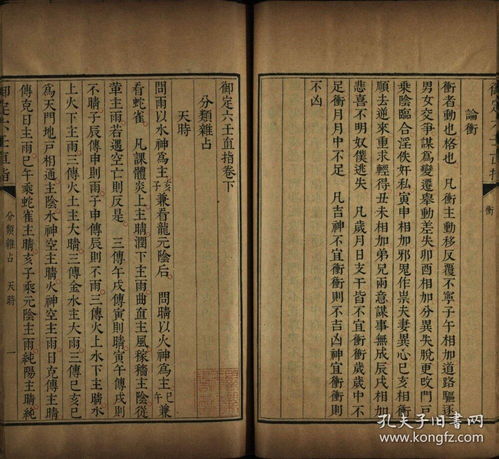 論衝
衝者動也格也　凡衝主動移反覆不寧子午相加道路驅馳
男女交爭謀為變遷舉動差失卯酉相加分異失脫更改門戶
乘陰臨合淫佚奸私寅申相加邪鬼作祟夫妻異心巳亥相衝
順去逆來重求輕得丑未相加弟兄兩意謀事無成辰戌相加
悲喜不明奴僕逃失　凡歲月日支干皆不宜衝衝歲歲中不
足衝月月中不足　凡吉神不宜衝衝則不吉凶神宜衝衝則
不凶
衝
御定六壬直指卷下
分類雜占
天時
問雨以水神為主亥子兼看龍元陰后　問晴以火神為主巳兼
看蛇雀　凡課體炎上主晴潤下主雨曲直主風稼穡主陰從
革主雨若遇空亡則反是　三傳午戌傳寅則晴寅午傳戌則
不晴子辰傳申則雨子申傳辰則不雨三傳火上水下主晴水
上火下主雨三傳火土主大晴三傳金水主大雨三傳巳亥巳
為天門地戶相通主陰水神空主晴火神空主雨日克傳主晴
傳克日主雨巳午乘蛇雀主晴亥子乘元陰主雨純陽主晴純
御定六壬直指
分類雜占　天時
一
孔夫子旧书网
www.kongfz.com